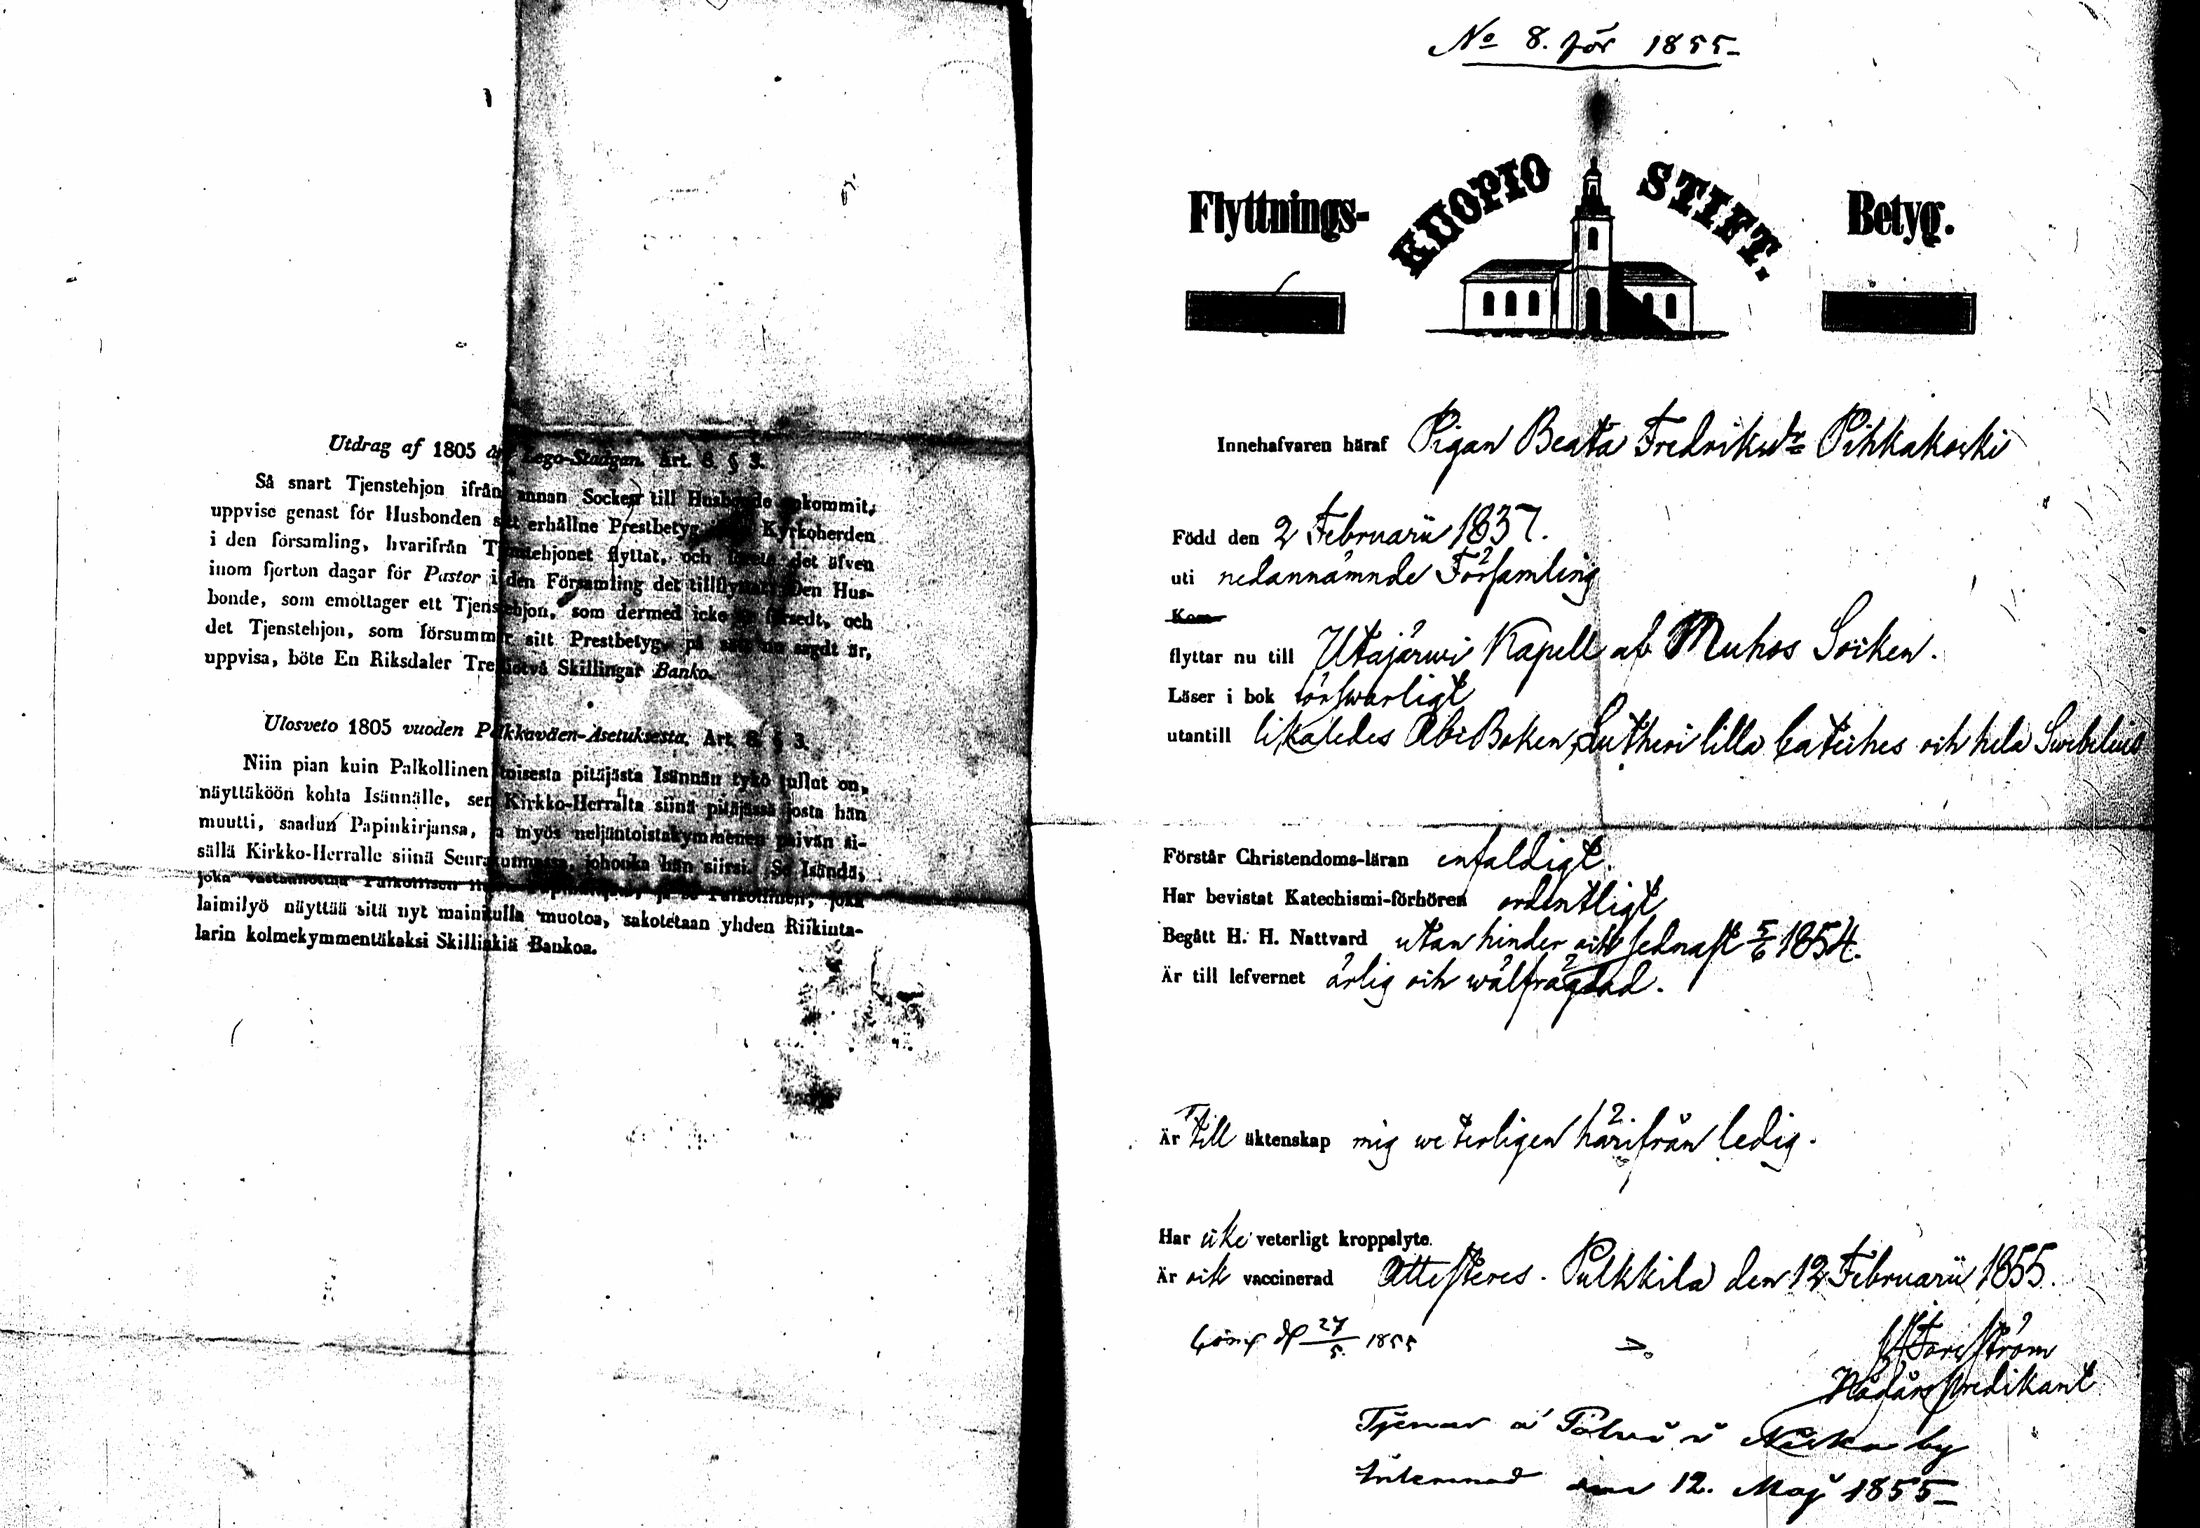 Utdrag af 1805 års Lego-Stadgan. Art. 8. § 3.
Så snart Tjenstehjon ifrån annan Socken till Husbonde ankommit,
uppvise genast för Husbonden sitt erhållne Prestbetyg Kyrkoherden
i den församling, hvarifrån Tjenstehjonet flyttat, och det äfven
inom fjorton dagar för Pastor i den Församling det tillflyttar. Den Hus-
bonde, som emottager ett Tjenstehjon, som dermed icke är försedt, och
det Tjenstehjon, som försummar sitt Prestbetyg, på sätt nu sagdt är,
uppvisa, böte En Riksdaler Trettiotvå Skillingar Banko.
Ulosveto 1805 vuoden Palkkaväen-Asetuksesta. Art. 8. § 3.
Niin pian kuin Palkollinen toisesta pitäjästä Isännän tykö tullut on,
näyttäköön kohta Isännälle, sen Kirkko-Herralta siinä pitäjässä josta hän
muutti, saadun Papinkirjansa, ja myös neljäntoistakymmenen päivän si-
sällä Kirkko-Herralle siinä Seurakunnassa, johonka hän siirsi. Se Isändä,
joka vastaanottaa Palkollisen Palkollinen, joka
laimilyö näyttää sitä nyt mainitulla muotoa, sakotetaan yhden Riikinta-
larin kolmekymmentäkaksi Skillinkiä Bankoa.
No 8. för 1855
Flyttnings- KUOPIO STIFT. Betyg.
Innehafvaren häraf Pigan Beata Fredriksdr Pihkakoski
Född den 2 Februarii 1837.
uti nedannämnde Församling
Kom
flyttar nu till Utajärwi Kapell af Muhos Socken.
Läser i bok förswarligt
utantill likaledes Abc Boken, Lutheri lilla Cateches och hela Swebelius
Förstår Christendoms-läran enfaldigt
Har bevistat Katechismi-förhören ordentligt
Begått H. H. Nattvard utan hinder och sednast 5/6 1854.
Är till lefvernet ärlig och wälfrägdad.
Är till äktenskap mig weterligen härifrån ledig.
Har icke veterligt kroppslyte.
Är ock vaccinerad Attesteres. Pulkkila den 12 Februarii 1855.
27/5 1855
Tjenar å i by
den 12. Maj 1855